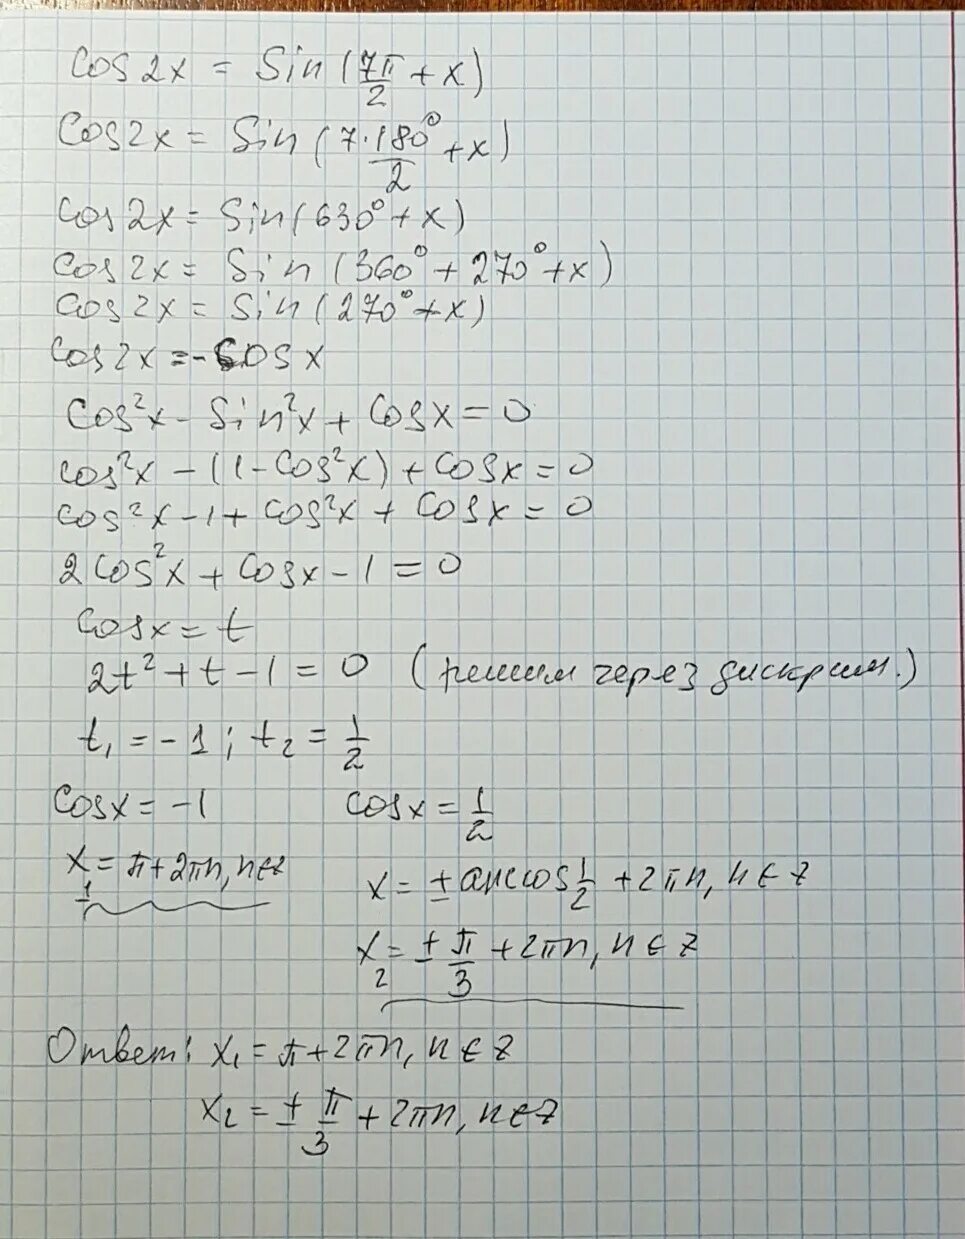 cos2x = Sin(7π/2 + x)
Cos2x = Sin(7·180°/2 + x)
cos2x = Sin(630° + x)
cos2x = Sin(360° + 270° + x)
cos2x = Sin(270° + x)
cos2x = -cosx
cos²x - Sin²x + cosx = 0
cos²x - (1 - cos²x) + cosx = 0
cos²x - 1 + cos²x + cosx = 0
2cos²x + cosx - 1 = 0
cosx = t
2t² + t - 1 = 0 (решим через дискрим.)
t₁ = -1; t₂ = 1/2
cosx = -1 cosx = 1/2
x₁ = π + 2πn, n∈z x = ± arccos 1/2 + 2πn, n∈z
x₂ = ± π/3 + 2πn, n∈z
Ответ: x₁ = π + 2πn, n∈z
x₂ = ± π/3 + 2πn, n∈z